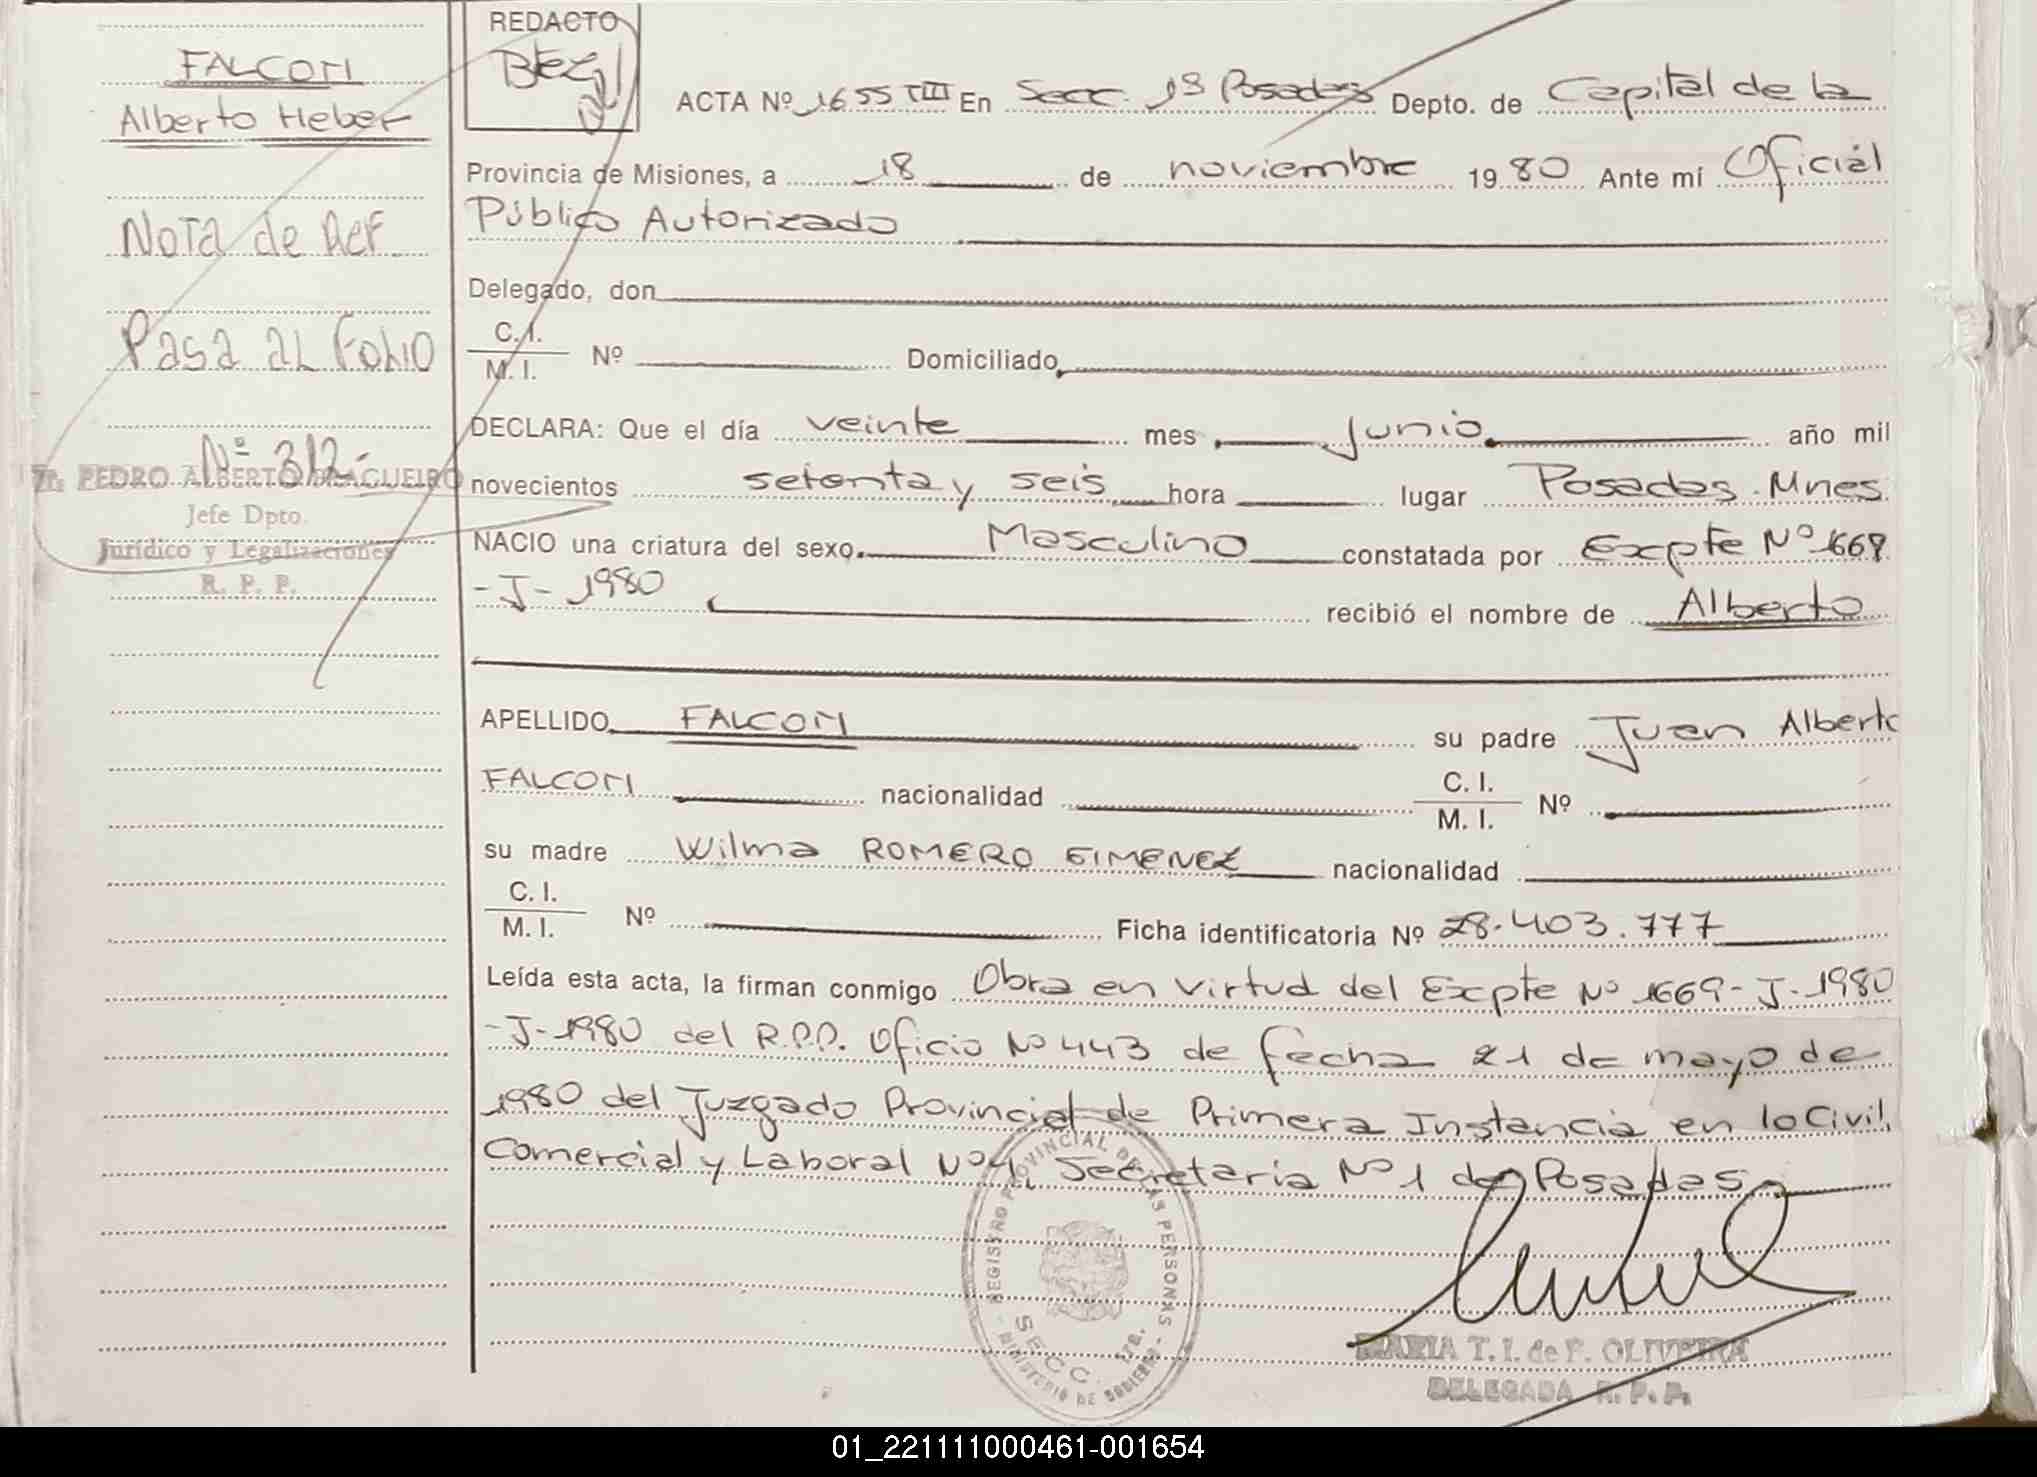 FALCON
Alberto Heber
Nota de Ref
Pasa al Folio
Nº 312-
PEDRO ALBERTO
Jefe Dpto.
Jurídico y Legalizaciones
R. P. P.
REDACTO
ACTA Nº 1655 TIII En Secc. 1ª Posadas Depto. de Capital de la
Provincia de Misiones, a 18 de noviembre 1980 Ante mí Oficial
Público Autorizado
Delegado, don
C. I.
M. I.
Nº Domiciliado
DECLARA: Que el día veinte mes Junio año mil
novecientos setenta y seis hora lugar Posadas. Mnes.
NACIO una criatura del sexo Masculino constatada por Expte Nº 1669
-J- 1980 recibió el nombre de Alberto
APELLIDO FALCON su padre Juan Alberto
FALCON nacionalidad C. I. M. I. Nº
su madre Wilma ROMERO GIMENEZ nacionalidad
C. I.
M. I.
Nº Ficha identificatoria Nº 28.403.777
Leída esta acta, la firman conmigo Obra en virtud del Expte Nº 1669-J-1980
-J-1980 del R.P.P. Oficio Nº 443 de fecha 21 de mayo de
1980 del Juzgado Provincial de Primera Instancia en lo Civil,
Comercial y Laboral Nº 4, Secretaria Nº 1 de Posadas
REGISTRO PROVINCIAL DE LAS PERSONAS
SECC. 1ra.
MINISTERIO DE GOBIERNO
MARIA T. I. de F. OLIVEIRA
DELEGADA R. P. P.
01_221111000461-001654